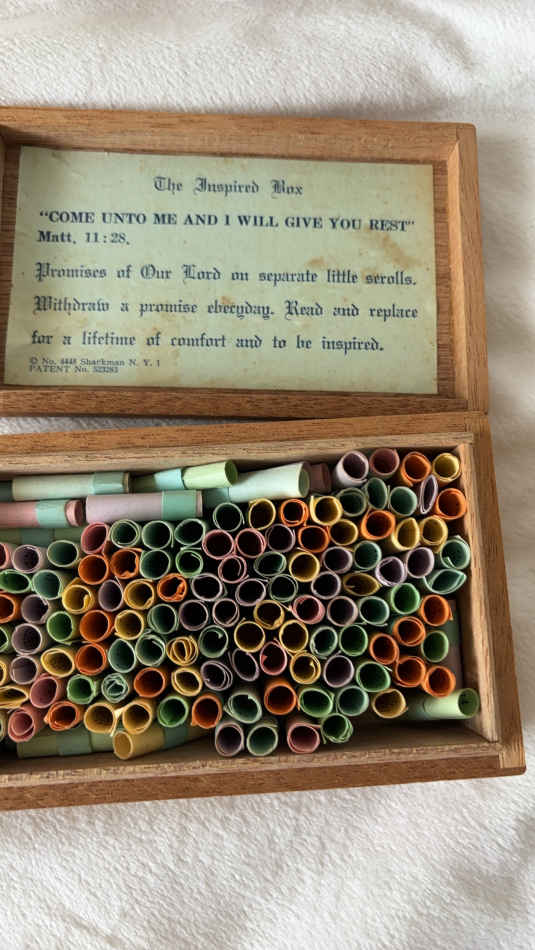 The Inspired Box
“COME UNTO ME AND I WILL GIVE YOU REST”
Matt. 11:28.
Promises of Our Lord on separate little scrolls.
Withdraw a promise everyday. Read and replace
for a lifetime of comfort and to be inspired.
© No. 4448 Sharkman N. Y. 1
PATENT No. 523283